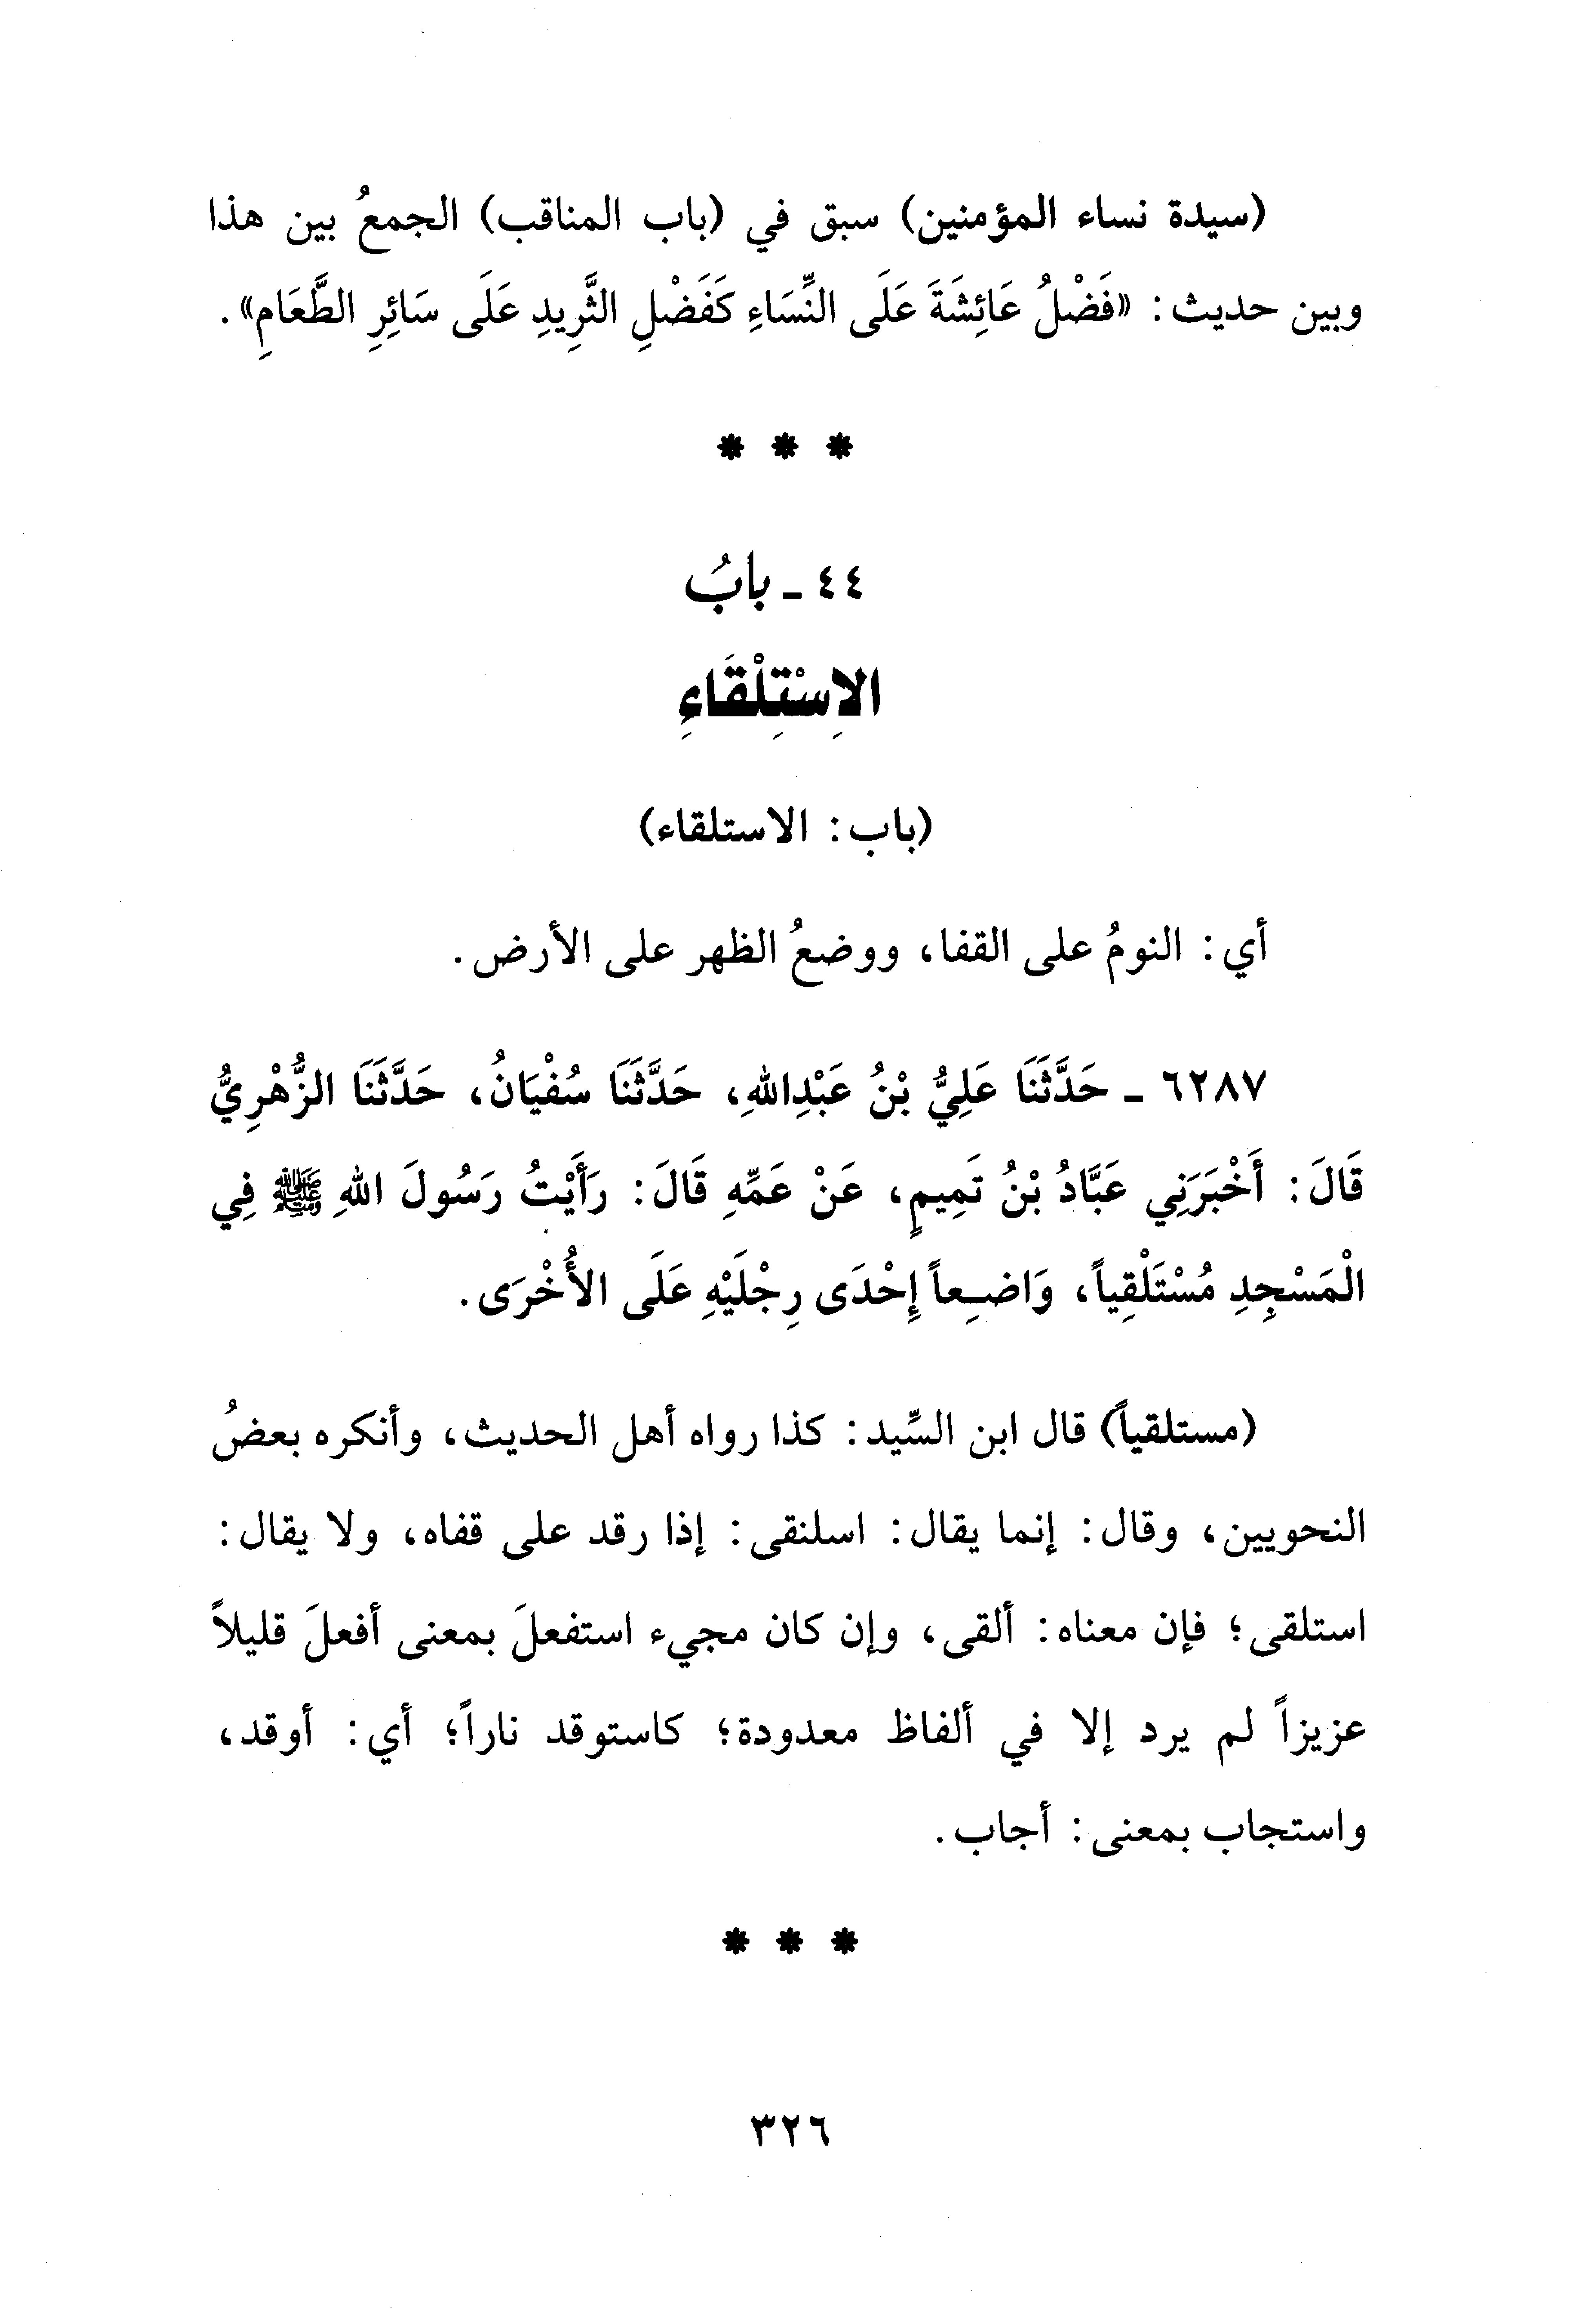 (سيدة نساء المؤمنين) سبق في (باب المناقب) الجمعُ بين هذا
وبين حديث: «فَضْلُ عَائِشَةَ عَلَى النِّسَاءِ كَفَضْلِ الثَّرِيدِ عَلَى سَائِرِ الطَّعَامِ».
* * *
٤٤ ـ بابُ
الاِسْتِلْقَاءِ
(باب: الاستلقاء)
أي: النومُ على القفا، ووضعُ الظهر على الأرض.
٦٢٨٧ ـ حَدَّثَنَا عَلِيُّ بْنُ عَبْدِاللهِ، حَدَّثَنَا سُفْيَانُ، حَدَّثَنَا الزُّهْرِيُّ
قَالَ: أَخْبَرَنِي عَبَّادُ بْنُ تَمِيمٍ، عَنْ عَمِّهِ قَالَ: رَأَيْتُ رَسُولَ اللهِ ﷺ فِي
الْمَسْجِدِ مُسْتَلْقِياً، وَاضِعاً إِحْدَى رِجْلَيْهِ عَلَى الأُخْرَى.
(مستلقياً) قال ابن السِّيد: كذا رواه أهل الحديث، وأنكره بعضُ
النحويين، وقال: إنما يقال: اسلنقى: إذا رقد على قفاه، ولا يقال:
استلقى؛ فإن معناه: ألقى، وإن كان مجيء استفعلَ بمعنى أفعلَ قليلاً
عزيزاً لم يرد إلا في ألفاظ معدودة؛ كاستوقد ناراً؛ أي: أوقد،
واستجاب بمعنى: أجاب.
* * *
٣٢٦